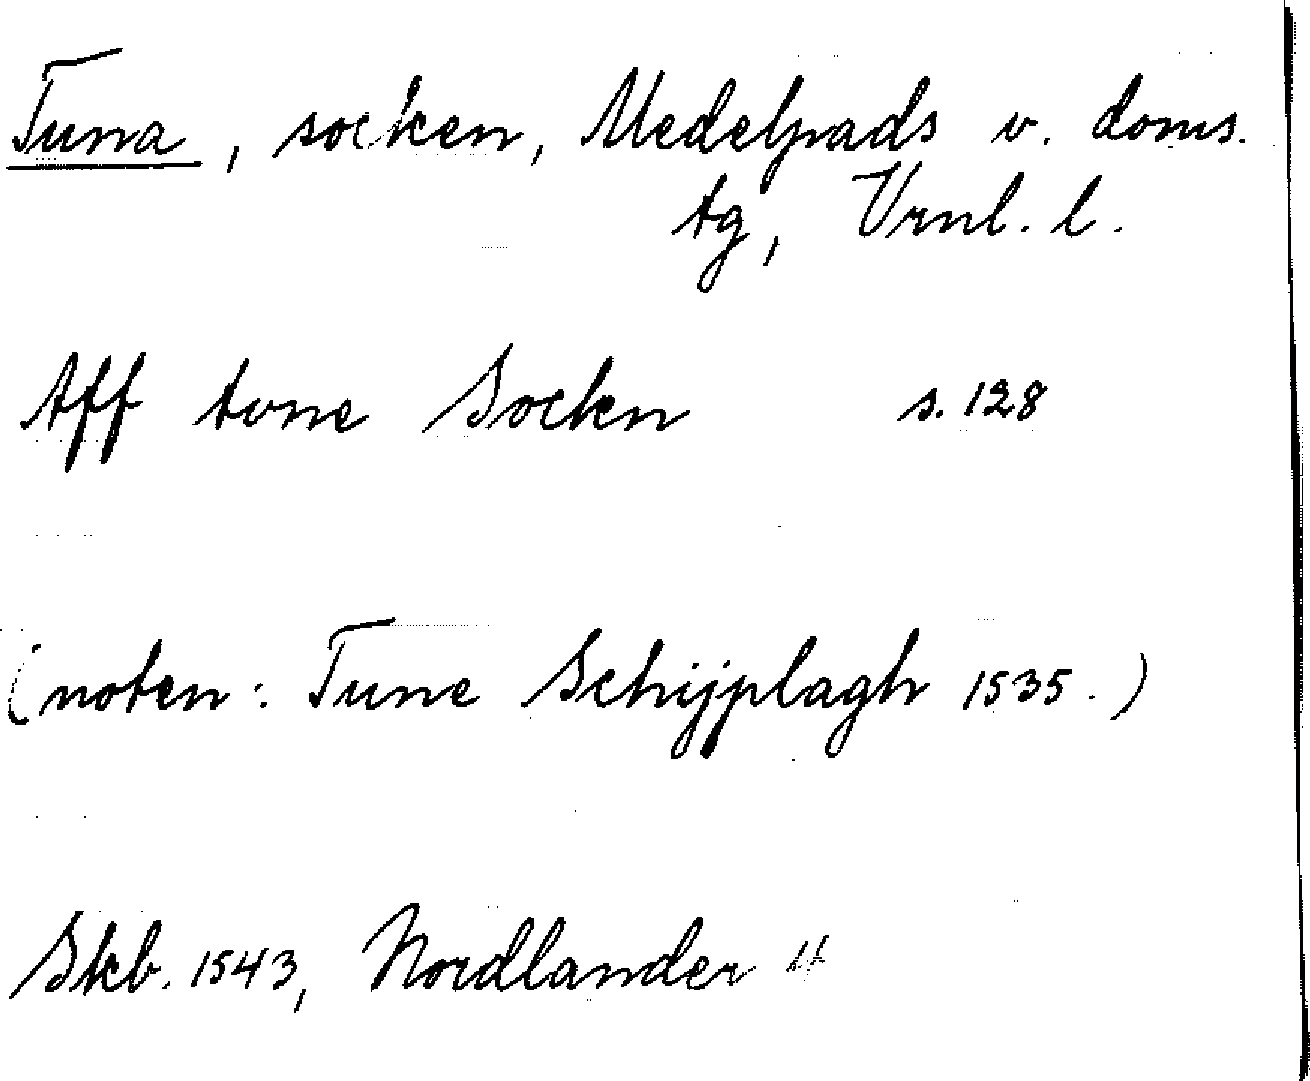 Tuna, socken, Medelpads v. doms.
tg, Vrnl. l.
Aff tune Sockn s. 128
(noten: Tune Schijplagh 1535.)
Skb. 1543, Nordlander